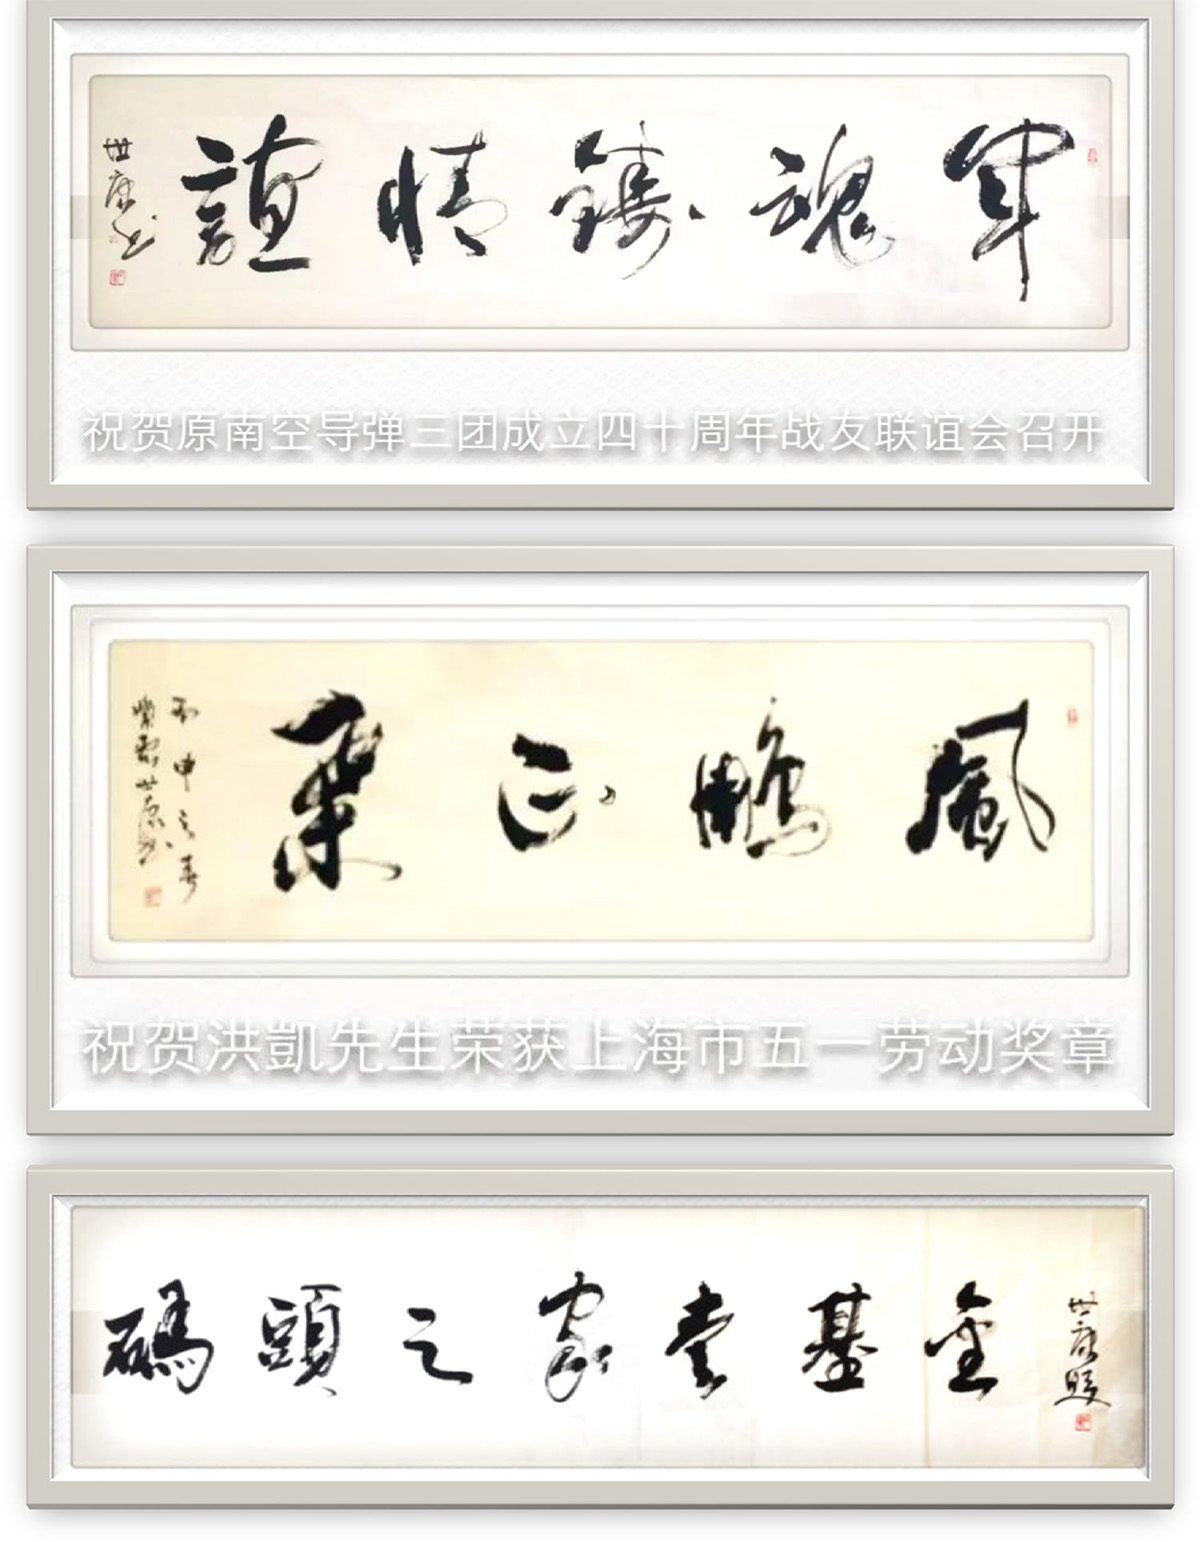 軍魂鑄情誼
世康书
祝贺原南空导弹三团成立四十周年战友联谊会召开
風鵬正
丙申之春
世康书
祝贺洪凱先生荣获上海市五一劳动奖章
碼頭之家壹基金
世康题